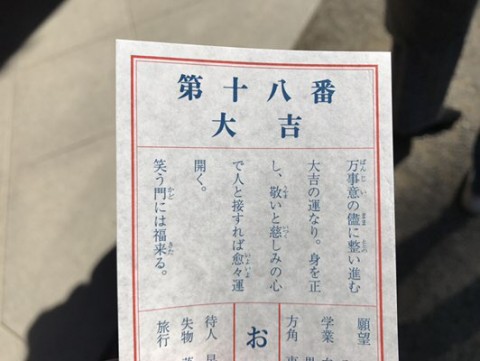 第十八番
大吉
万事意の儘に整い進む
大吉の運なり。身を正
し、敬いと慈しみの心
で人と接すれば愈々運
開く。
笑う門には福来る。
願望
学業
方角
お
待人
失物
旅行